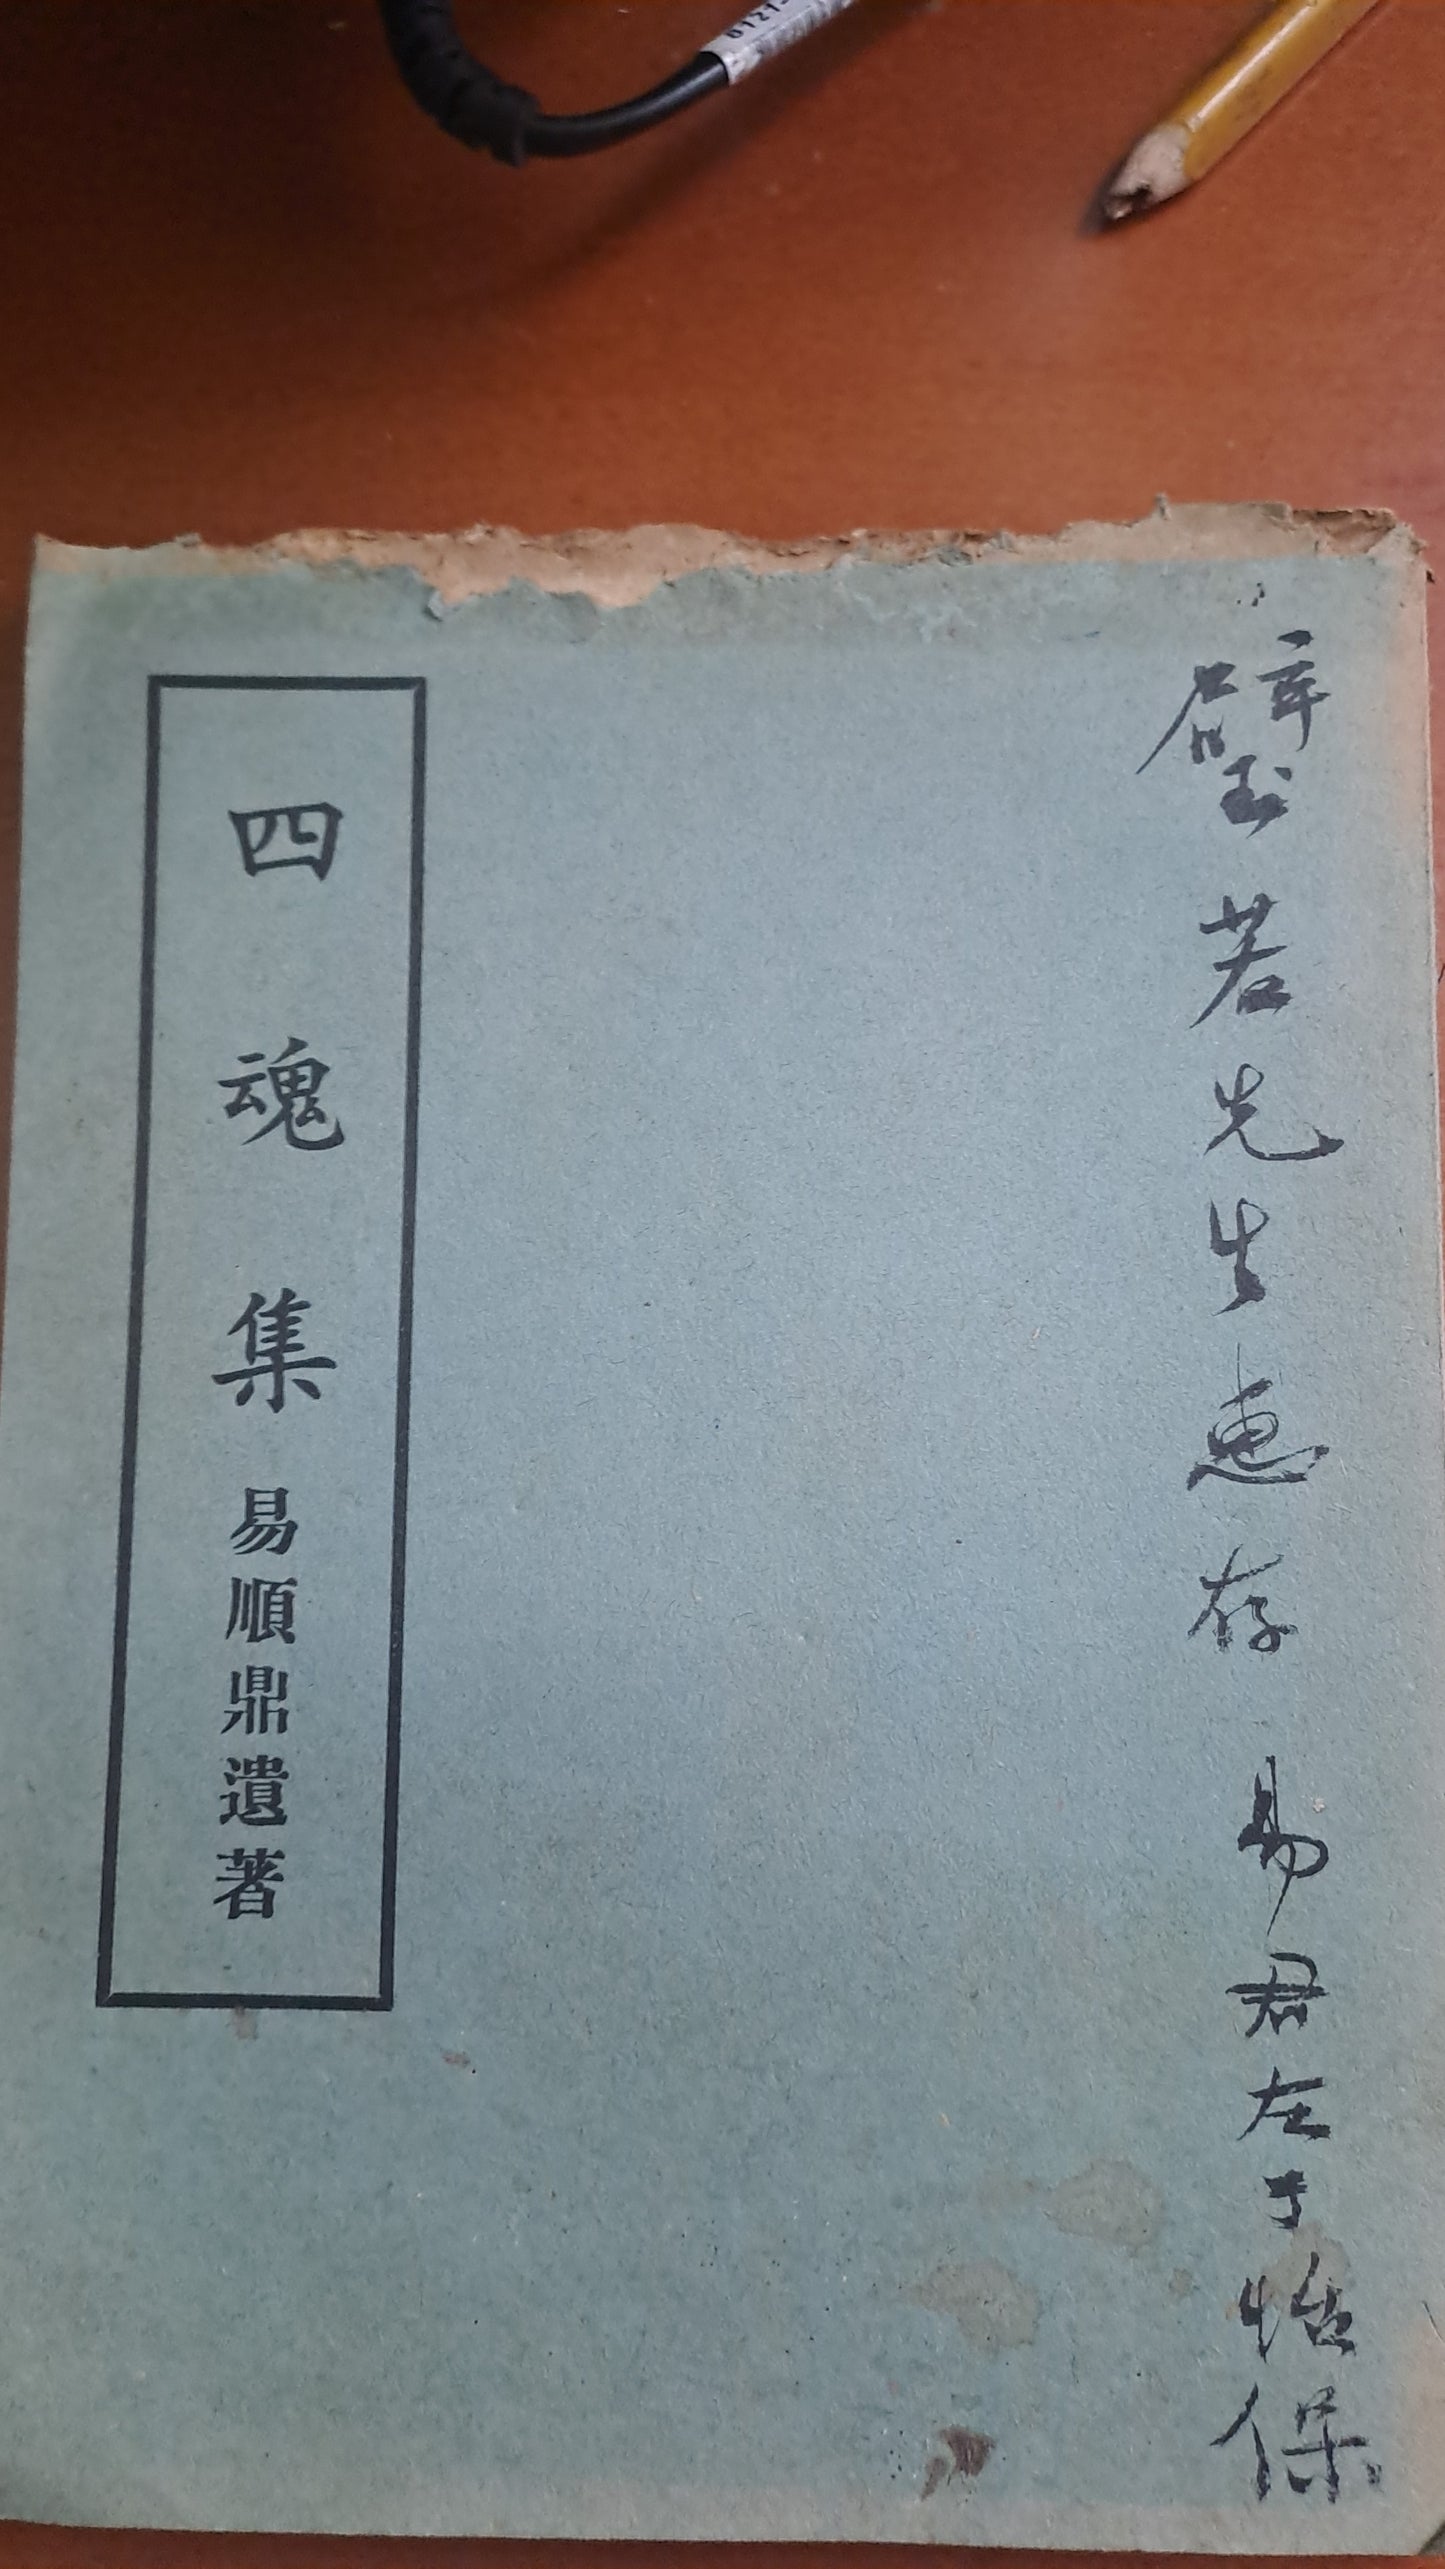 璧若先生惠存 易君左于怡保
四魂集 易順鼎遺著
0121-